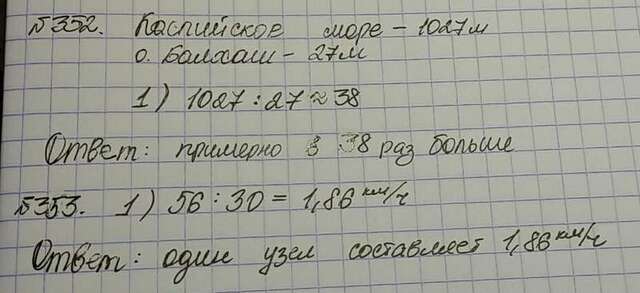 №352. Каспийское море - 1027м
о. Балхаш - 27м
1) 1027 : 27 ≈ 38
Ответ: примерно в 38 раз больше
№353. 1) 56 : 30 = 1,86 км/ч
Ответ: один узел составляет 1,86 км/ч